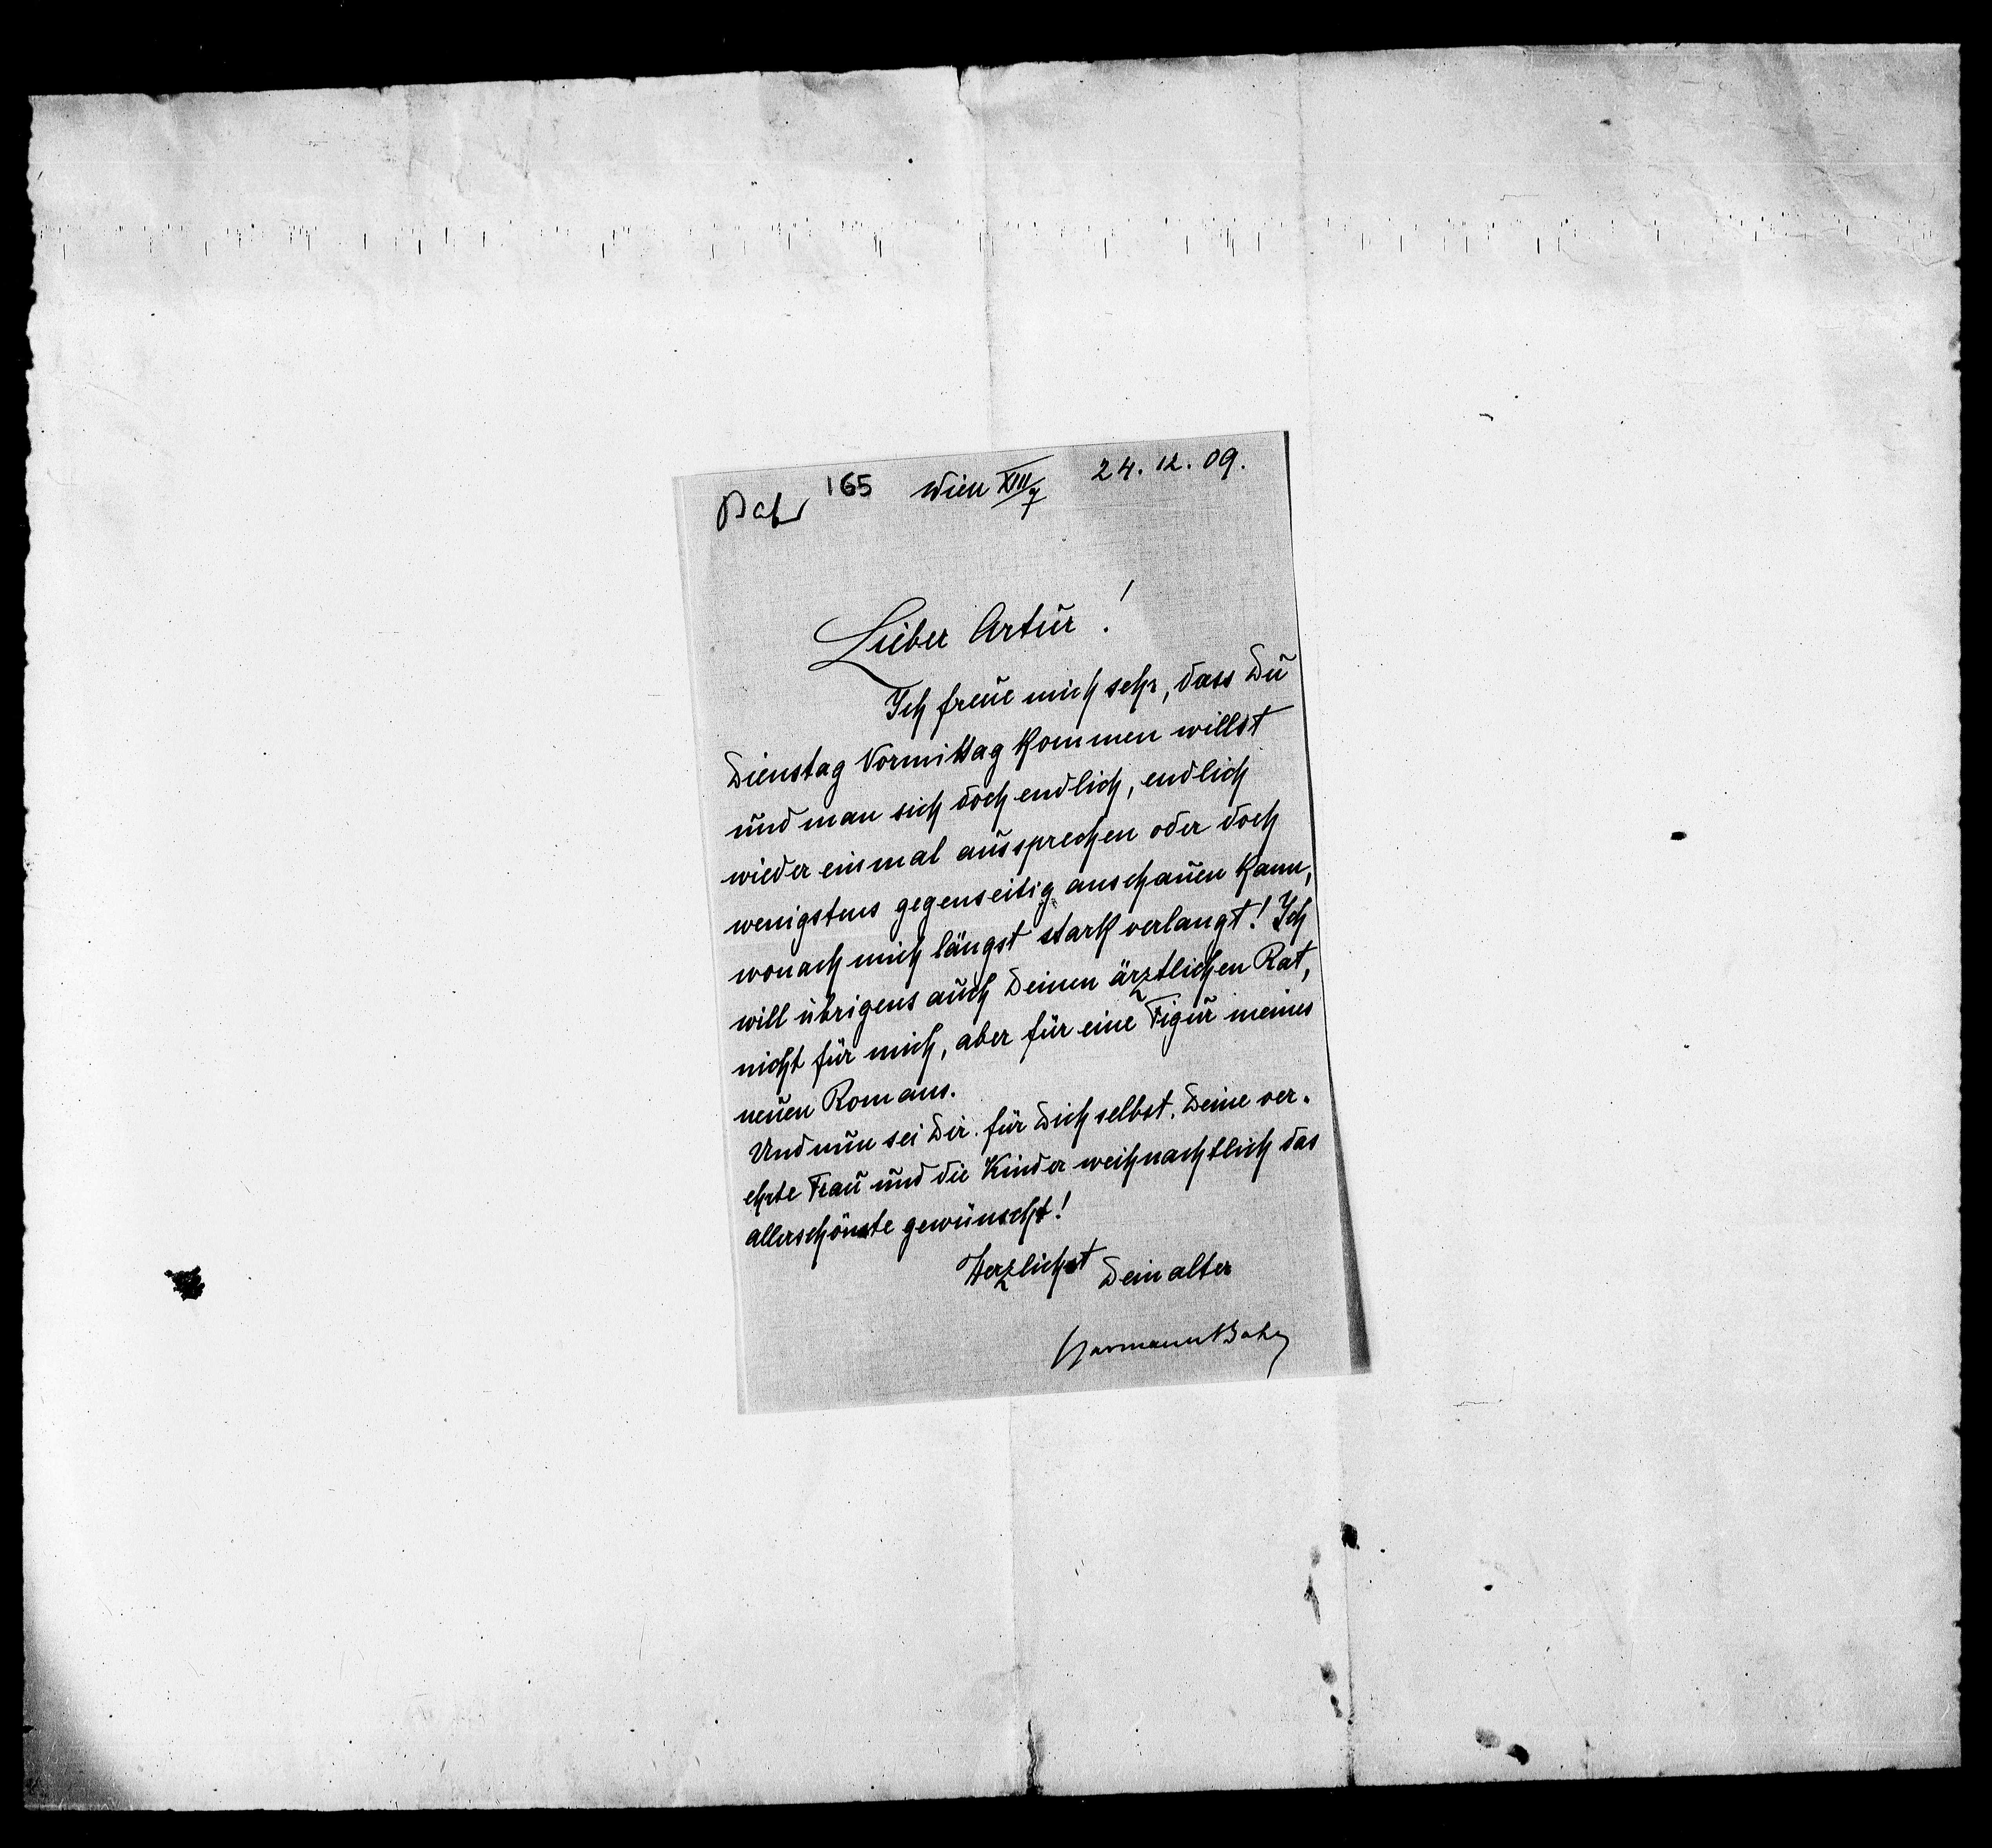 Bahr 165 Wien XIII/7 24. 12. 09.
Lieber Artur!
Ich freue mich sehr, dass Du
Dienstag Vormittag kommen willst
und man sich doch endlich, endlich
wieder einmal aussprechen oder doch
wenigstens gegenseitig anschauen kann,
wonach mich längst stark verlangt! Ich
will übrigens auch Deinen ärztlichen Rat,
nicht für mich, aber für eine Figur meines
neuen Romans.
Und nun sei Dir. für Dich selbst. Deine ver-
ehrte Frau und die Kinder weihnachtlich das
allerschönste gewünscht!
Herzlichst Dein alter
Hermann Bahr